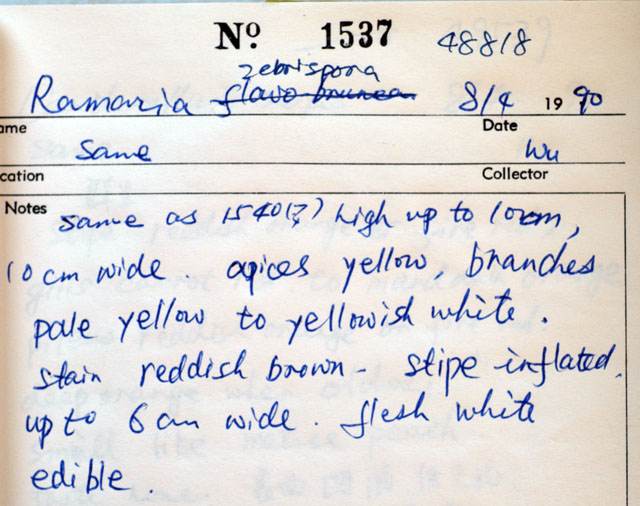 Nº 1537 48818
zebrispora
Ramaria flavo-brunnea 8/4 1990
ame Date
Same Wu
cation Collector
Notes same as 1540(?) high up to 10cm,
10 cm wide. apices yellow, branches
pale yellow to yellowish white.
stain reddish brown - stipe inflated.
up to 6 cm wide. flesh white
edible.